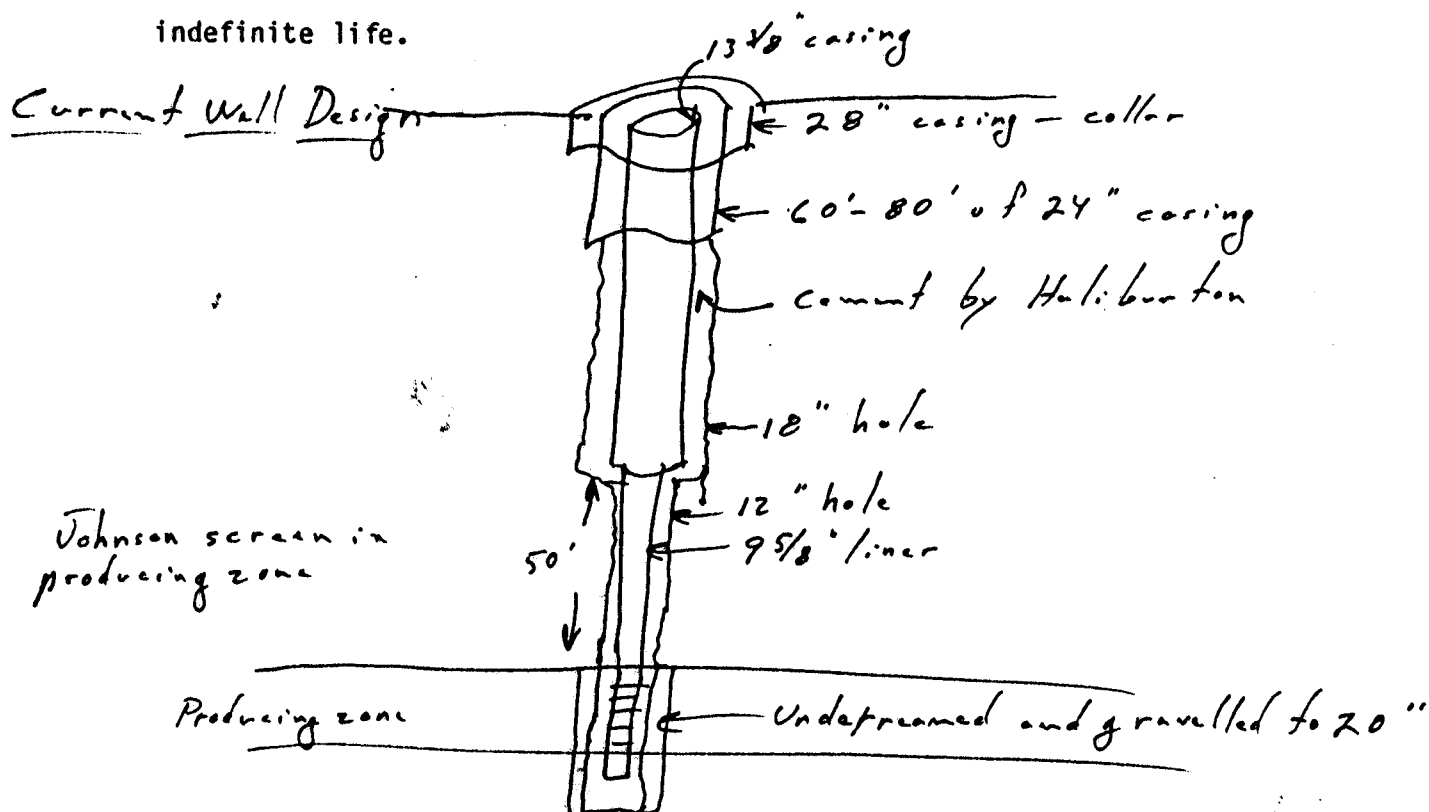 indefinite life.
13 3/8" casing
Current Well Design
28" casing - collar
60'- 80' of 24" casing
Cement by Haliburton
18" hole
12" hole
9 5/8" liner
50'
Johnson screen in
producing zone
Producing zone
Underreamed and gravelled to 20"